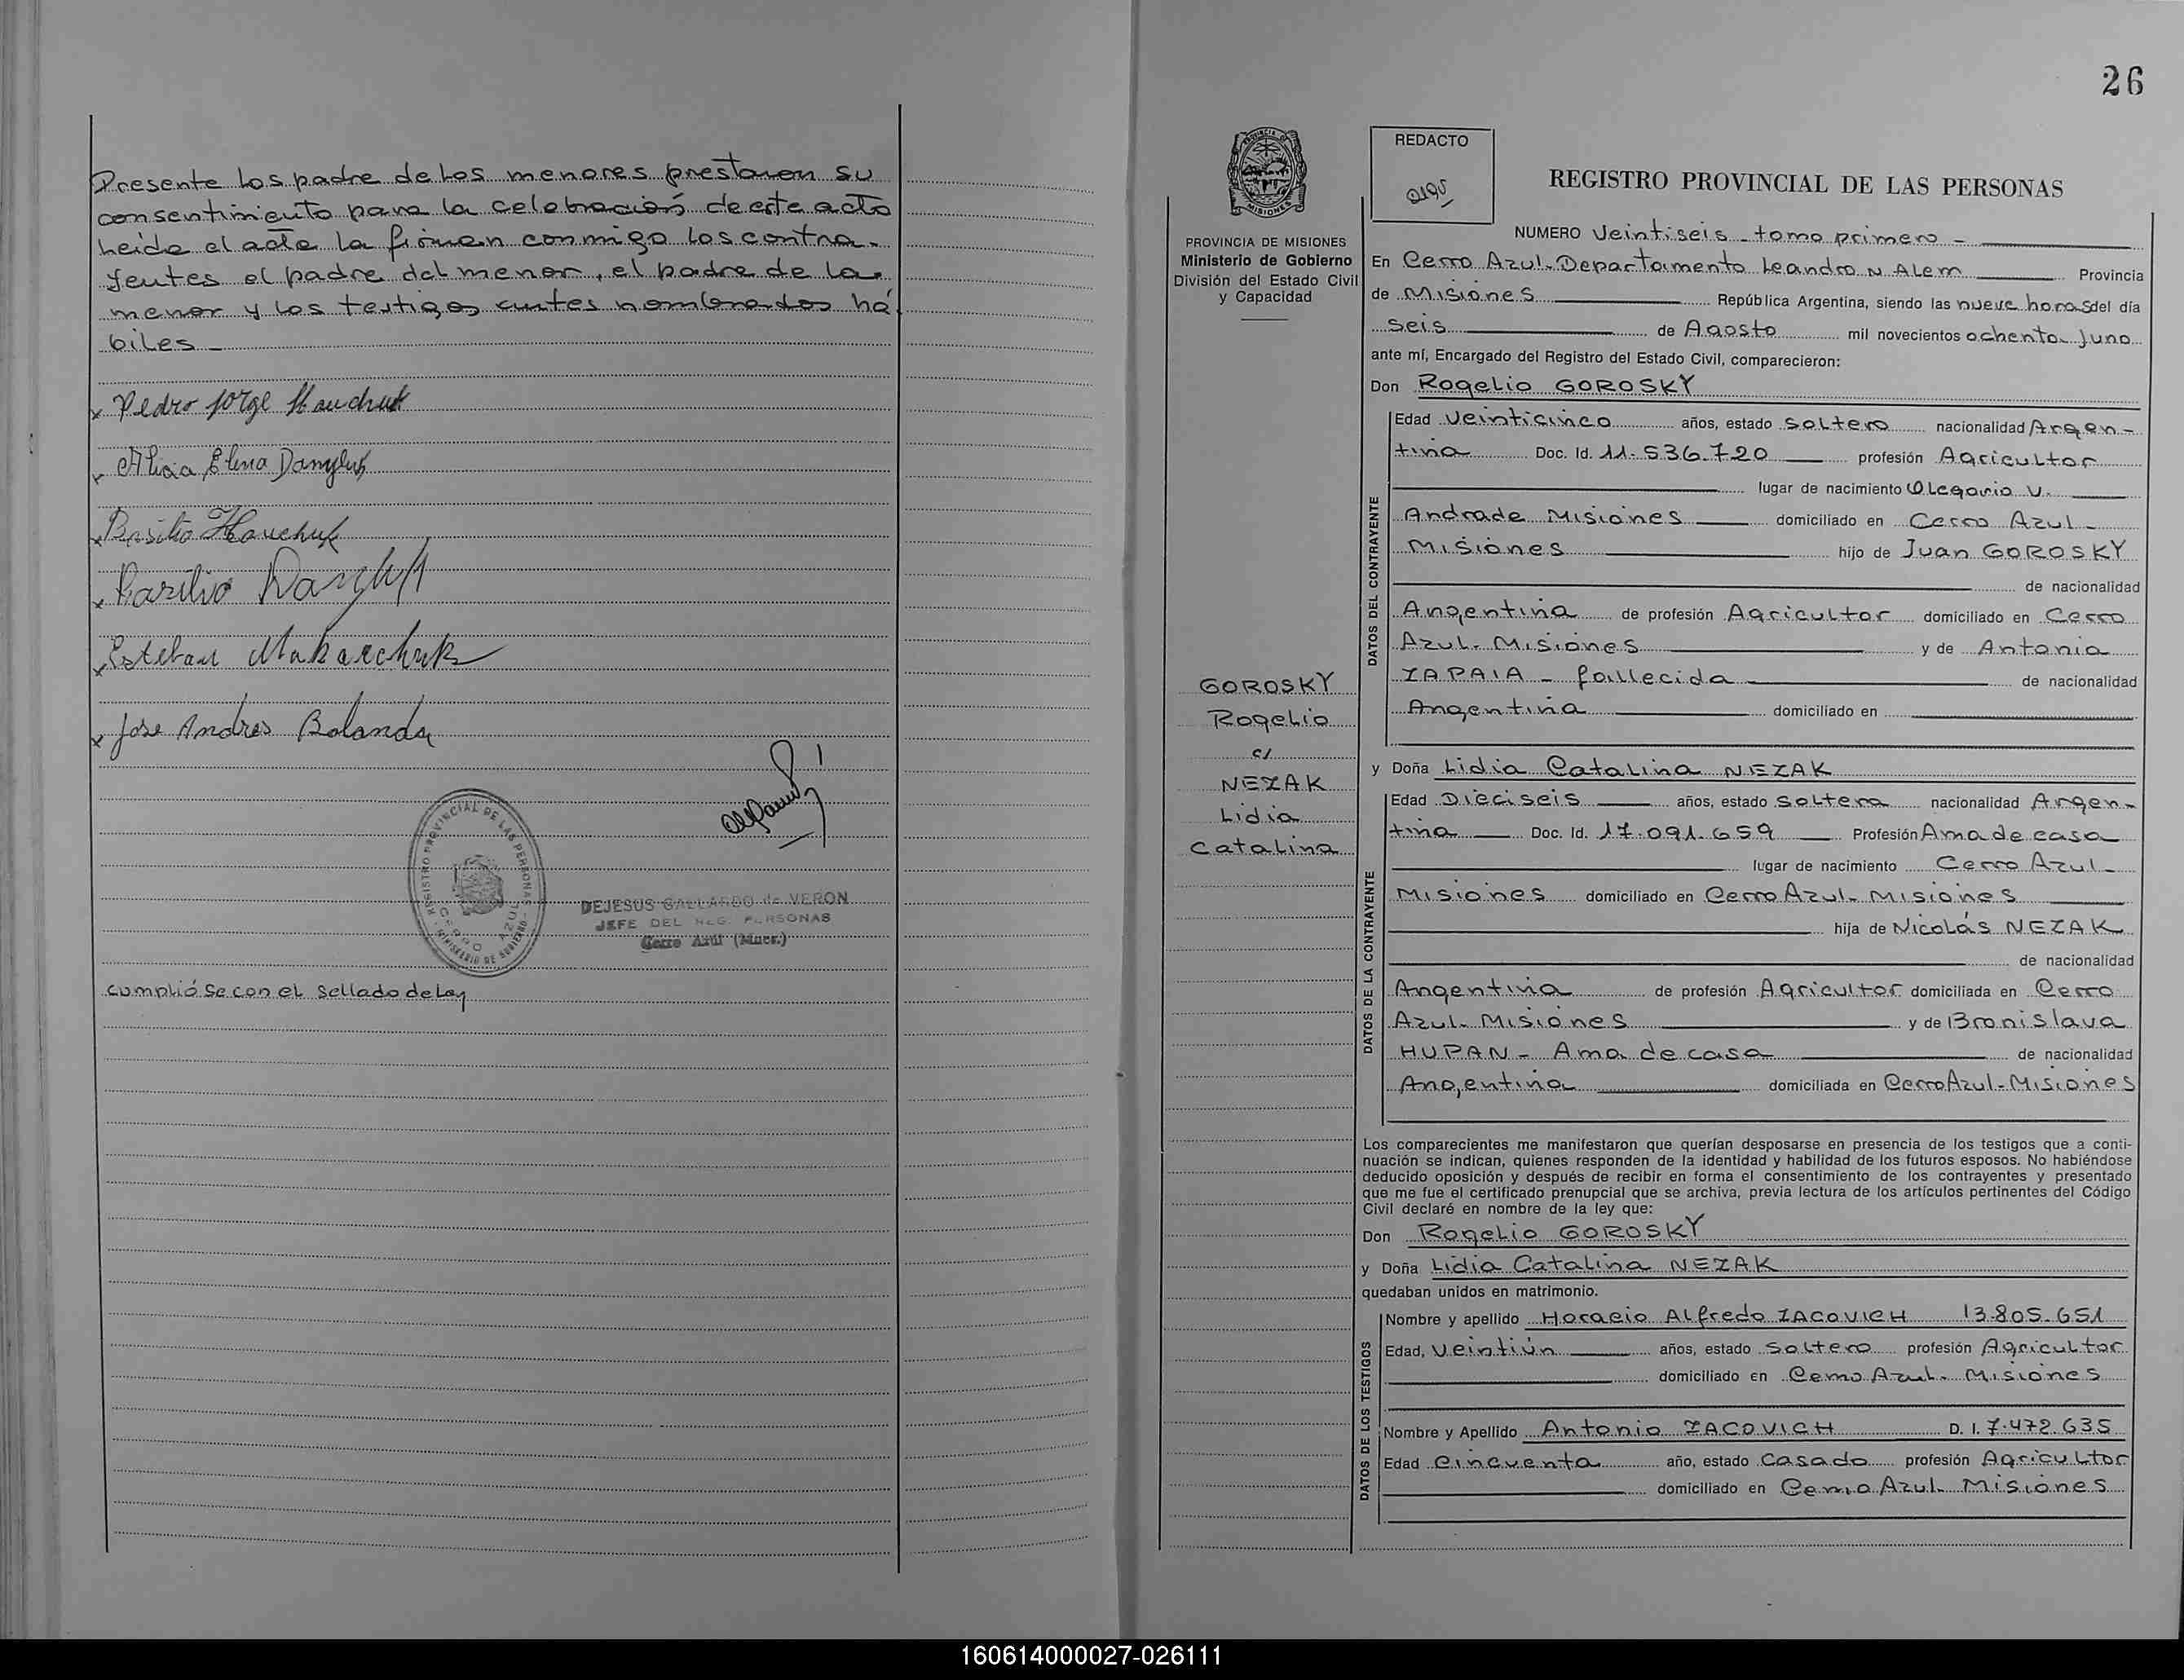 Presente los padre de los menores prestaron su
consentimiento para la celebración de este acto
Leida el acta la firman conmigo los contra-
yentes el padre del menor, el padre de la
menor y los testigos antes nombrados há
biles
x Pedro Jorge Hauchuk
x Alicia Elena Danyluk
x Basilio Hauchuk
x Basilio Danyluk
x Esteban Makarchuk
x Jose Andres Bolanda
REGISTRO PROVINCIAL DE LAS PERSONAS
CERRO AZUL
MINISTERIO DE GOBIERNO
DEJESUS GALLARDO de VERON
JEFE DEL REG. PERSONAS
Cerro Azul (Mnes.)
cumplióse con el sellado de Ley
26
PROVINCIA DE
MISIONES
PROVINCIA DE MISIONES
Ministerio de Gobierno
División del Estado Civil
y Capacidad
GOROSKY
Rogelio
c/
NEZAK
Lidia
Catalina
REDACTO
REGISTRO PROVINCIAL DE LAS PERSONAS
NUMERO Veintiseis - tomo primero -
En Cerro Azul - Departamento Leandro N Alem Provincia
de Misiones República Argentina, siendo las nueve horas del día
seis de Agosto mil novecientos ochenta y uno
ante mí, Encargado del Registro del Estado Civil, comparecieron:
Don Rogelio GOROSKY
DATOS DEL CONTRAYENTE
Edad veinticinco años, estado soltero nacionalidad Argen-
tina Doc. Id. 11.536.720 profesión Agricultor
lugar de nacimiento Olegario V.
Andrade Misiones domiciliado en Cerro Azul -
Misiones hijo de Juan GOROSKY
de nacionalidad
Argentina de profesión Agricultor domiciliado en Cerro
Azul - Misiones y de Antonia
ZAPAIA - fallecida de nacionalidad
Argentina domiciliado en
y Doña Lidia Catalina NEZAK
DATOS DE LA CONTRAYENTE
Edad Dieciseis años, estado soltera nacionalidad Argen-
tina Doc. Id. 17.091.659 Profesión Ama de casa
lugar de nacimiento Cerro Azul -
Misiones domiciliado en Cerro Azul - Misiones
hija de Nicolás NEZAK
de nacionalidad
Argentina de profesión Agricultor domiciliada en Cerro
Azul - Misiones y de Bronislava
HUPAN - Ama de casa de nacionalidad
Argentina domiciliada en Cerro Azul - Misiones
Los comparecientes me manifestaron que querían desposarse en presencia de los testigos que a conti-
nuación se indican, quienes responden de la identidad y habilidad de los futuros esposos. No habiéndose
deducido oposición y después de recibir en forma el consentimiento de los contrayentes y presentado
que me fue el certificado prenupcial que se archiva, previa lectura de los artículos pertinentes del Código
Civil declaré en nombre de la ley que:
Don Rogelio GOROSKY
y Doña Lidia Catalina NEZAK
quedaban unidos en matrimonio.
DATOS DE LOS TESTIGOS
Nombre y apellido Horacio Alfredo ZACOVICH 13.805.651
Edad, veintiún años, estado soltero profesión Agricultor
domiciliado en Cerro Azul - Misiones
Nombre y Apellido Antonio ZACOVICH D. I. 7.472.635
Edad cincuenta año, estado casado profesión Agricultor
domiciliado en Cerro Azul - Misiones
160614000027-026111